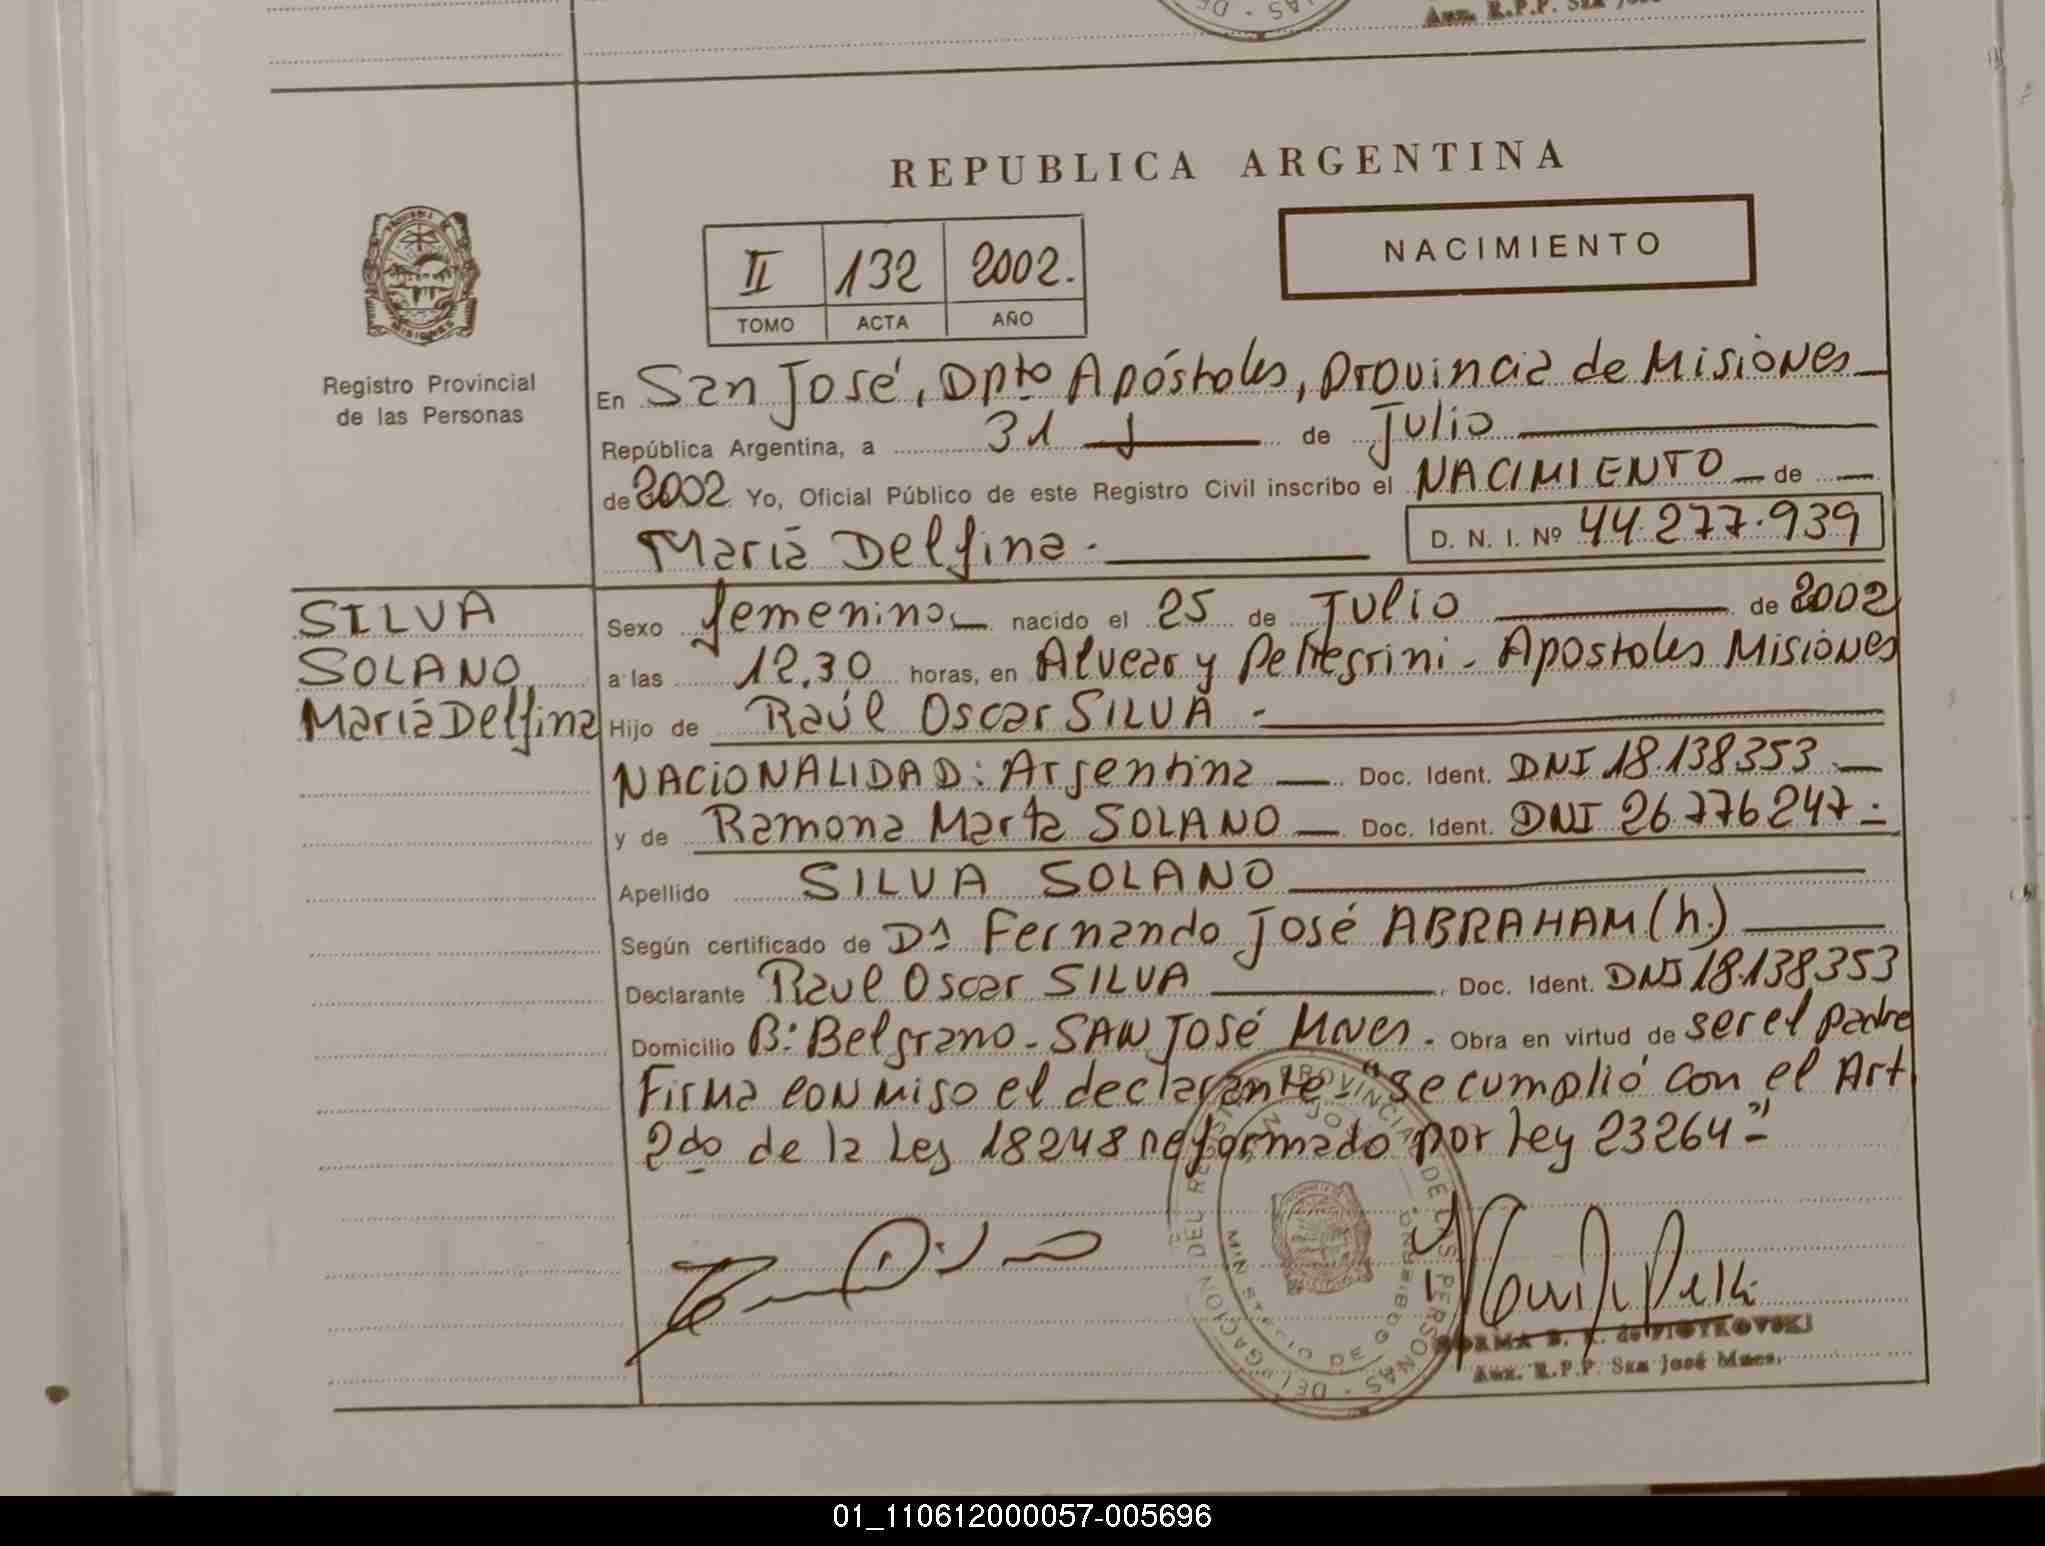 Aux. R.P.P. San José
REPUBLICA ARGENTINA
NACIMIENTO
II 132 2002.
TOMO ACTA AÑO
MISIONES
Registro Provincial
de las Personas
En San José, Dpto Apóstoles, Provincia de Misiones
República Argentina, a 31 de Julio
de 2002 Yo, Oficial Público de este Registro Civil inscribo el NACIMIENTO de
María Delfina.- D. N. I. Nº 44.277.939
SILVA
SOLANO
María Delfina
Sexo femenino nacido el 25 de Julio de 2002
a las 12,30 horas, en Alvear y Pellegrini - Apostoles Misiones
Hijo de Raúl Oscar SILVA -
NACIONALIDAD: Argentina Doc. Ident. DNI 18.138353
y de Ramona Marta SOLANO Doc. Ident. DNI 26.776247-
Apellido SILVA SOLANO
Según certificado de Dr Fernando José ABRAHAM (h.)
Declarante Raul Oscar SILVA Doc. Ident. DNI 18.138353
Domicilio B: Belgrano - SAN JOSÉ Mnes. Obra en virtud de ser el padre
Firma conmigo el declarante - "se cumplió con el Art
2do de la Ley 18248 reformado por ley 23264"-
DELEGACION DEL REGISTRO PROVINCIAL DE LAS PERSONAS
MINISTERIO DE GOBIERNO
SAN JOSE
NORMA de PIOTROVSKI
Aux. R.P.P. San José Mnes.
01_110612000057-005696